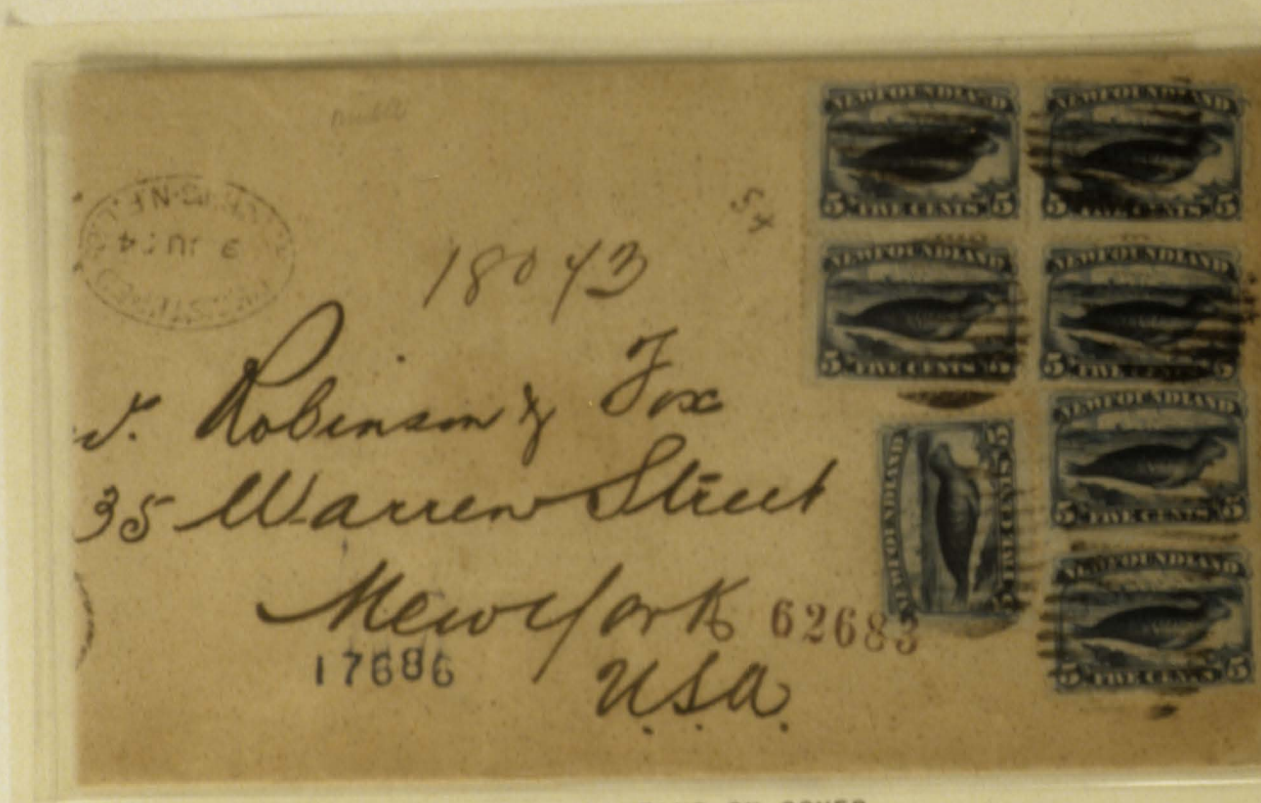 NEWFOUNDLAND
5 FIVE CENTS 5
NEWFOUNDLAND
5 FIVE CENTS 5
NEWFOUNDLAND
5 FIVE CENTS 5
NEWFOUNDLAND
5 FIVE CENTS 5
NEWFOUNDLAND
5 FIVE CENTS 5
NEWFOUNDLAND
5 FIVE CENTS 5
NEWFOUNDLAND
5 FIVE CENTS 5
REGISTERED
54
Robinson & Fox
35 Warren Street
New York
62683
17686
U.S.A.